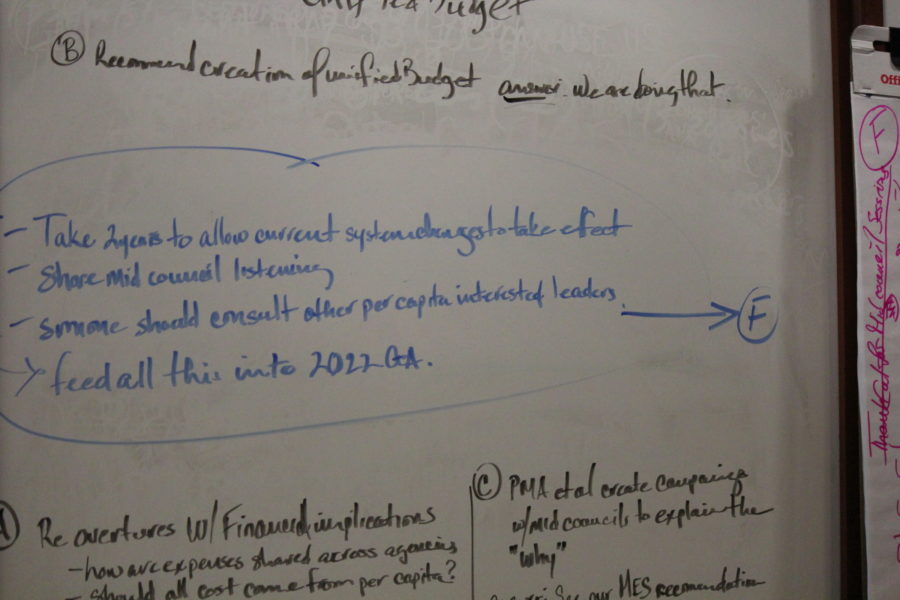 Budget
Ⓑ Recommend creation of unified Budget answer: we are doing that.
- Take 2 years to allow current system changes to take effect
- Share mid council listening
- Somone should consult other per capita interested leaders. → Ⓕ
> feed all this into 2022 GA.
Ⓒ PMA et al create campaign
w/mid councils to explain the
"why"
our MES recomendation
Re overtures w/ Financial implications
- how are expenses shared across agencies
- should all cost come from per capita?
Offi
Mid council Session